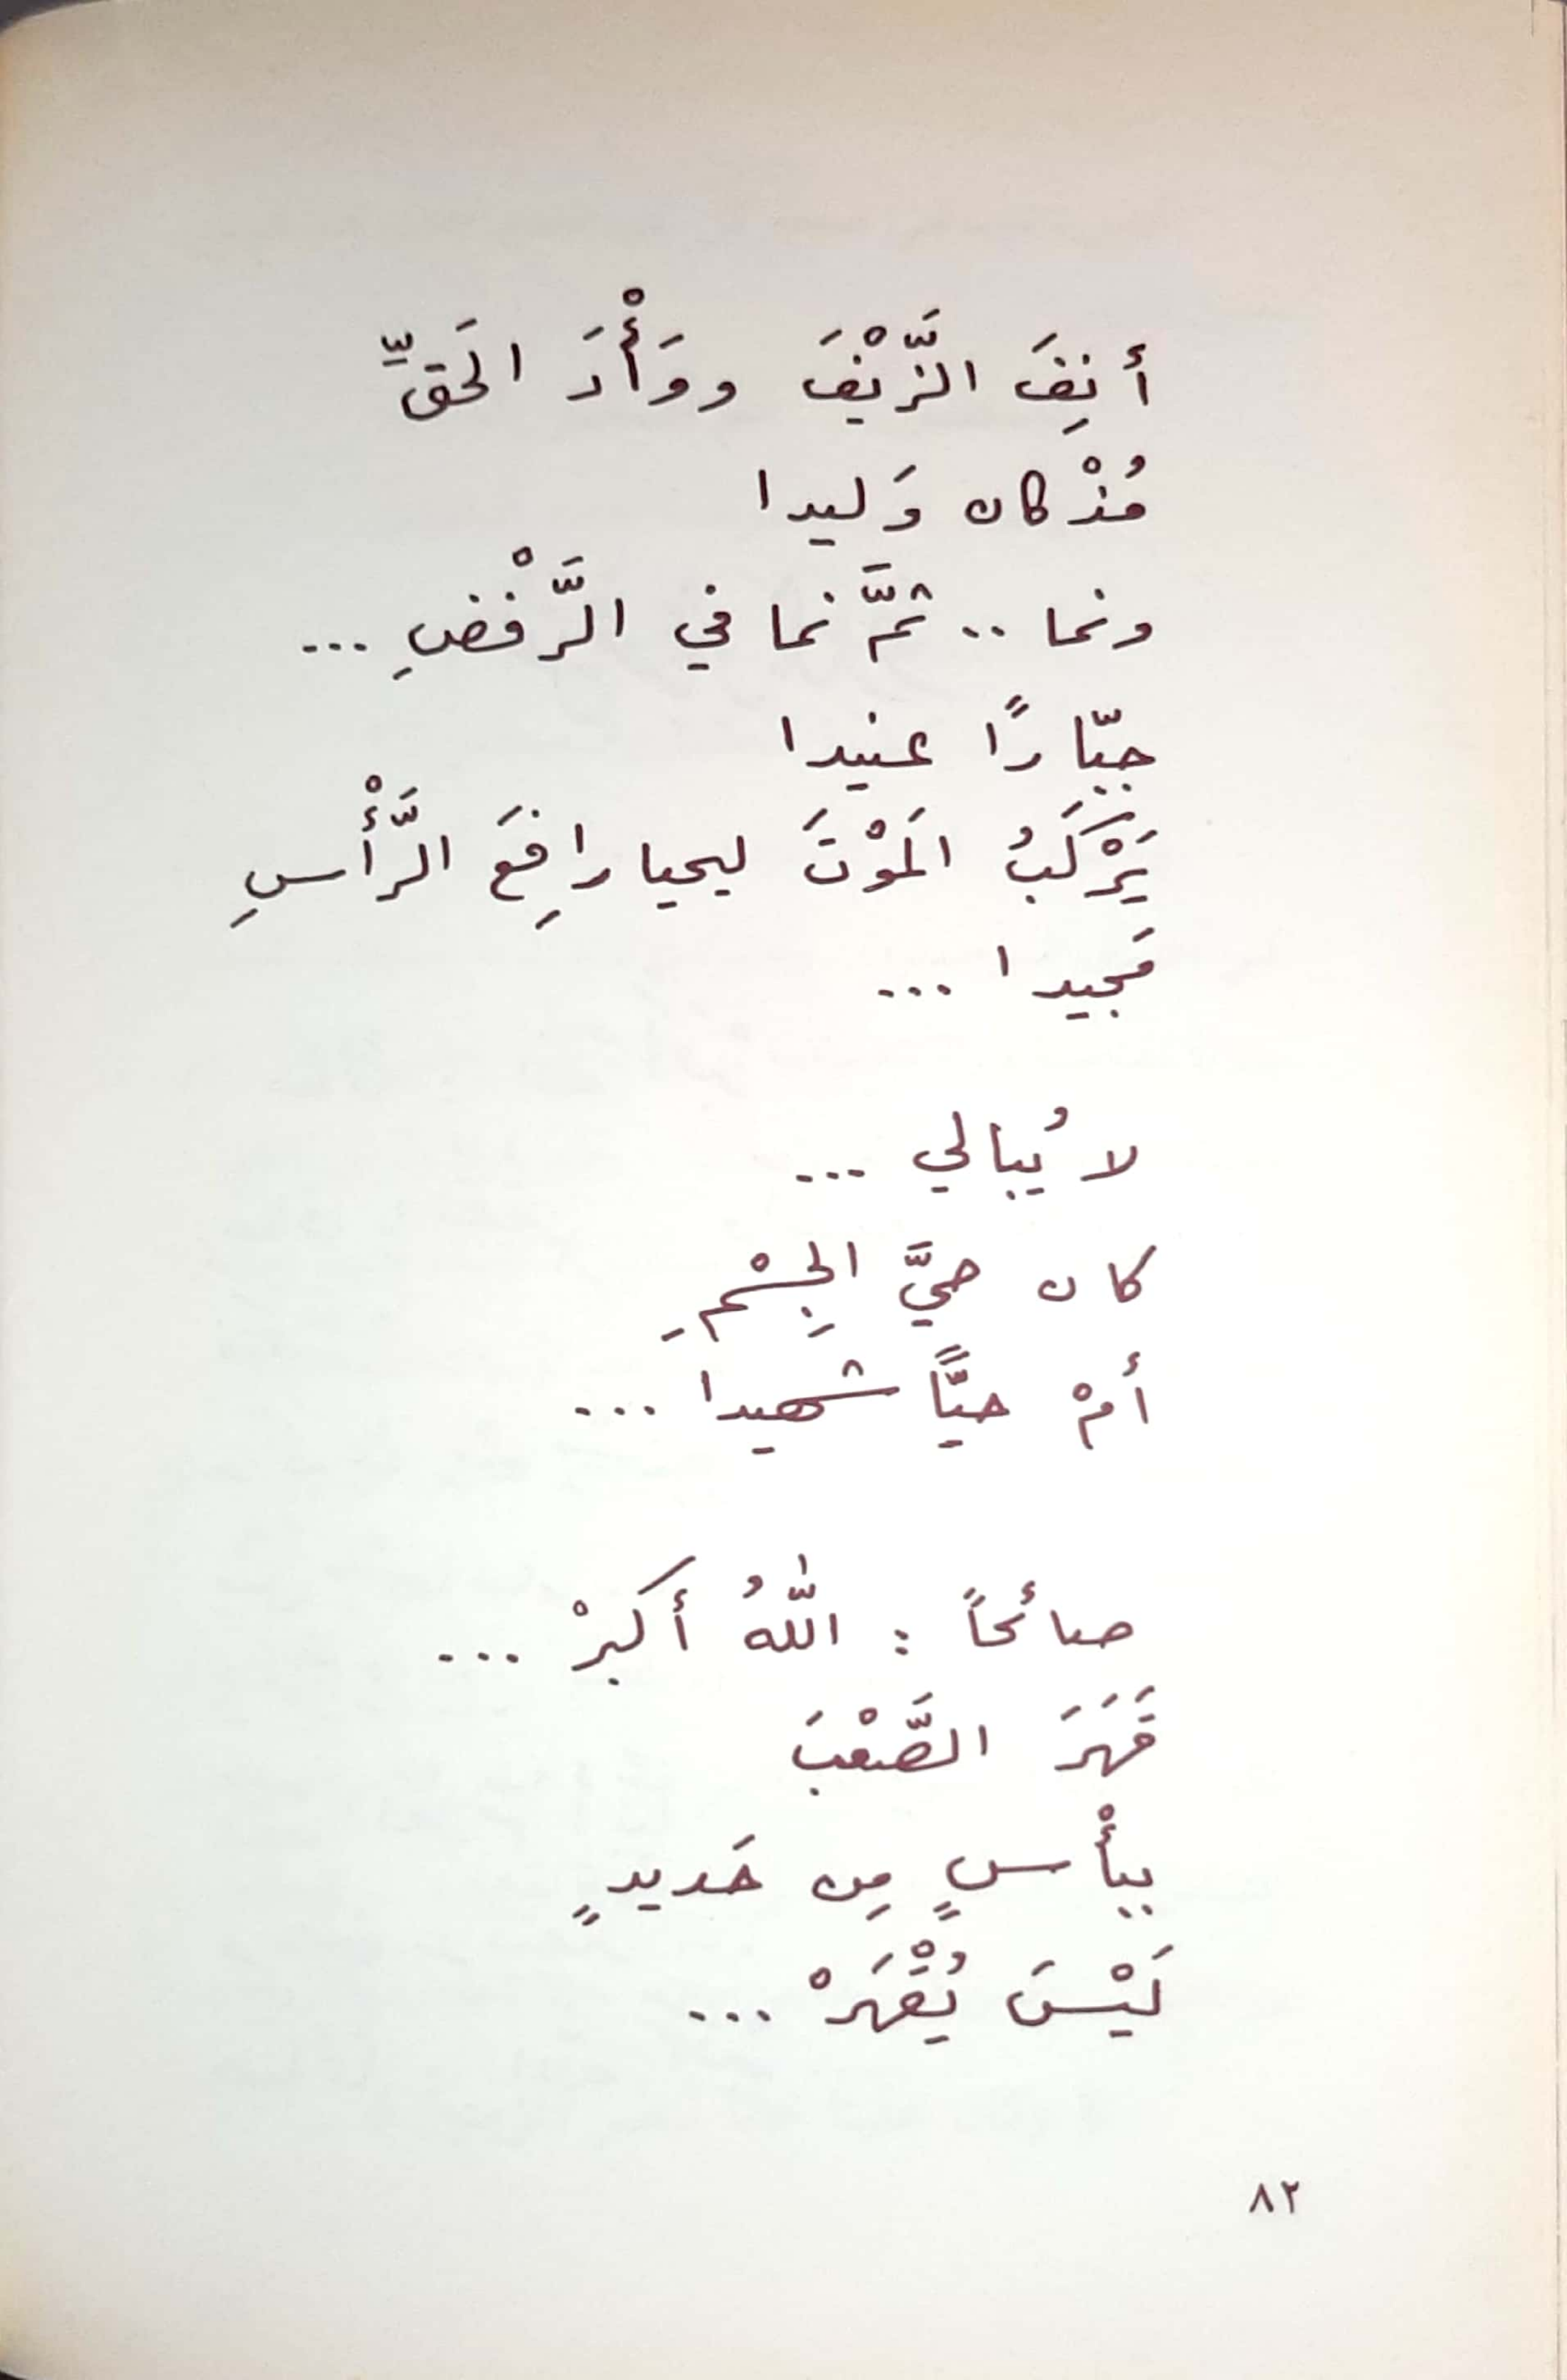 أنِفَ الزَّيْفَ ووَأْدَ الحَقِّ
مُذْ كان وَليدا
ونما .. ثمَّ نما في الرَّفْضِ ...
جبّارًا عنيدا
يَرْكَبُ المَوْتَ ليحيا رافِعَ الرَّأْسِ
مَجيدا ...
لا يُبالي ...
كان حيَّ الجِسْمِ
أمْ حيًّا شهيدا ...
صائحاً : اللّٰهُ أكبرْ ...
قَهَرَ الصَّعْبَ
ببأْسٍ مِن حَديدٍ
لَيْسَ يُقْهَرْ ...
٨٢